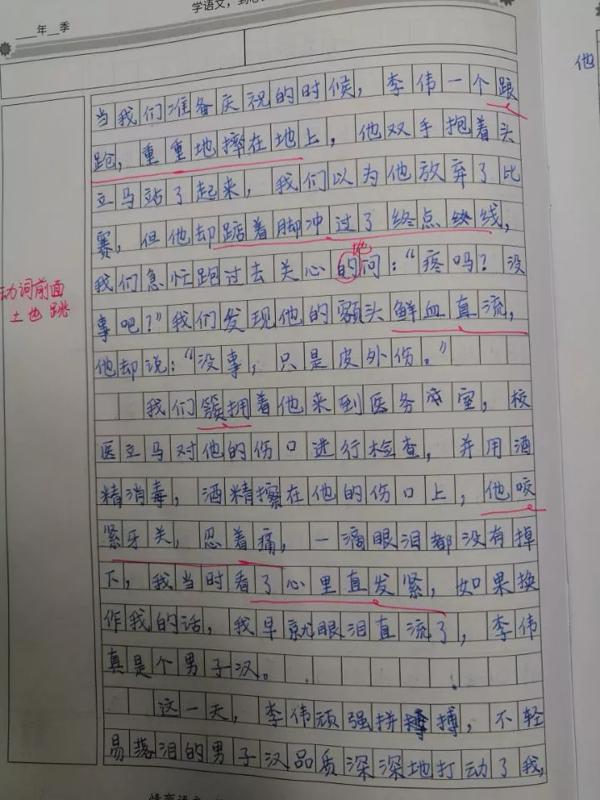 学语文，到
年 季
他
当我们准备庆祝的时候，李伟一个踉
跄，重重地摔在地上，他双手抱着头
立马站了起来，我们以为他放弃了比
赛，但他却踮着脚冲过了终点终线，
地
我们急忙跑过去关心的问：“疼吗？没
动词前面
土也 跳
事吧？”我们发现他的额头鲜血直流，
他却说：“没事，只是皮外伤。”
我们簇拥着他来到医务室，校
医立马对他的伤口进行检查，并用酒
精消毒，酒精擦在他的伤口上，他咬
紧牙关，忍着痛，一滴眼泪都没有掉
下，我当时看了心里直发紧，如果换
作我的话，我早就眼泪直流了，李伟
真是个男子汉。
这一天，李伟顽强拼搏，不轻
易落泪的男子汉品质深深地打动了我，